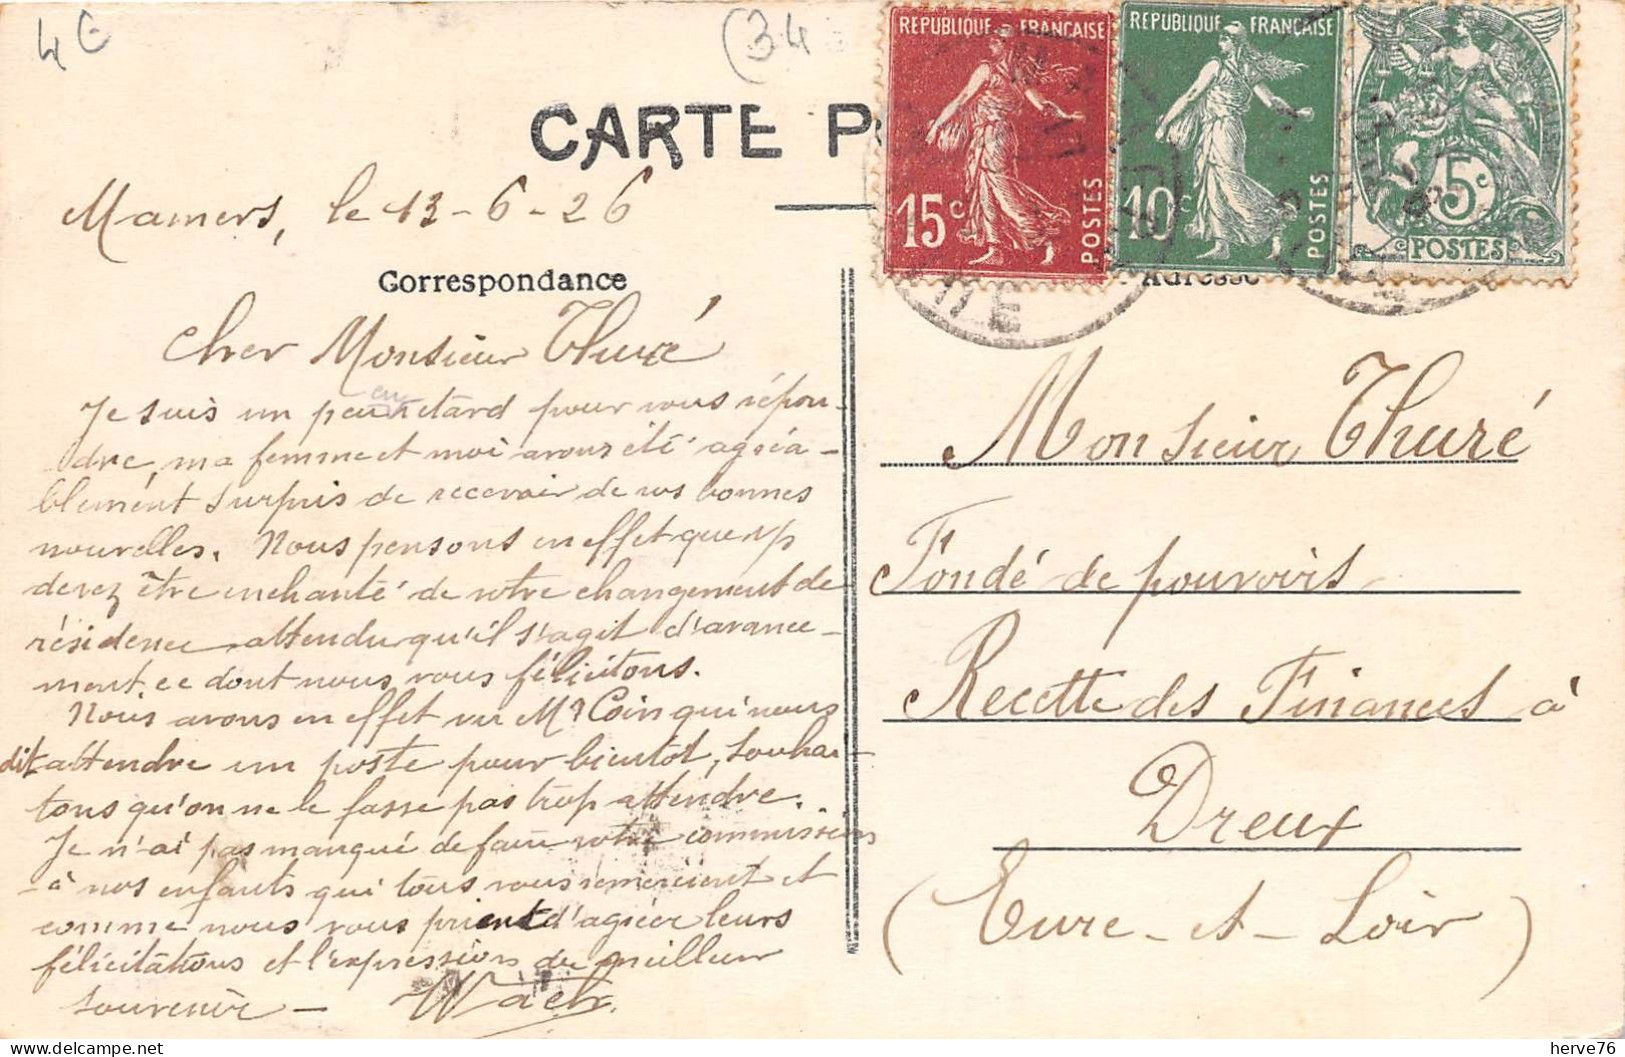 4€
(34
RÉPUBLIQUE FRANÇAISE
15c
POSTES
RÉPUBLIQUE FRANÇAISE
10c
POSTES
5c
POSTES
CARTE P
Mamers, le 13-6-26
Correspondance
Cher Monsieur Thuré
Je suis un peu en retard pour vous répon-
dre, ma femme et moi avons été agréa-
blement surpris de recevoir de vos bonnes
nouvelles. Nous pensons en effet que vs
devez être enchanté de votre changement de
résidence attendu qu'il s'agit d'avance-
ment, ce dont nous vous félicitons.
Nous avons en effet vu Mr Coin qui nous
dit attendre un poste pour bientôt, souhai-
tons qu'on ne le fasse pas trop attendre.
Je n'ai pas manqué de faire votre commission
à nos enfants qui tous vous remercient et
comme nous vous prient d'agréer leurs
félicitations et l'expression du meilleur
souvenir -
Adresse
Monsieur Thuré
Fondé de pouvoirs
Recette des Finances à
Dreux
(Eure-et-Loir)
herve76